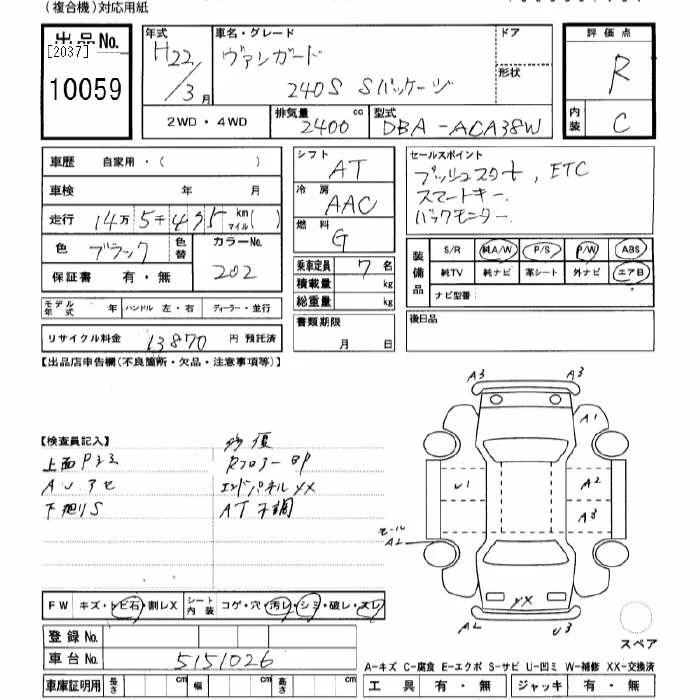 (複合機)対応用紙
出品No. [2037] 10059
年式 H22/3月
車名・グレード ヴァンガード 240S Sパッケージ
ドア
形状
2WD・4WD
排気量 2400 cc
型式 DBA-ACA38W
評価点 R
内装 C
車歴 自家用・( )
車検 年 月
走行 14万5千495 km マイル( )
色 ブラック 色替 カラーNo. 202
保証書 有・無
モデル年式 年 ハンドル 左・右 ディーラー・並行
リサイクル料金 13870 円 預託済
シフト AT
冷房 AAC
燃料 G
乗車定員 7名
積載量 kg
総重量 kg
書類期限 月 日
セールスポイント
プッシュスタート, ETC
スマートキー.
バックモニター.
装備品 S/R 純A/W P/S P/W ABS
純TV 純ナビ 革シート 外ナビ エアB
ナビ型番:
後日品
【出品店申告欄(不良箇所・欠品・注意事項等)】
【検査員記入】
修復
上面Pキミ RフロアーBP
AUアセ エンドパネルXX
下廻りS AT不調
A3 A3
A1
U1 A2
A3
モール A2
XX
A2 U3
スペア
FW キズ・トビ石・割レX シート内装 コゲ・穴・汚レ・シミ・破レ・スレ
登録No.
車台No. 5151026
車庫証明用 長さ cm 幅 cm 高さ cm
A-キズ C-腐食 E-エクボ S-サビ U-凹ミ W-補修 XX-交換済
工具 有・無 ジャッキ 有・無